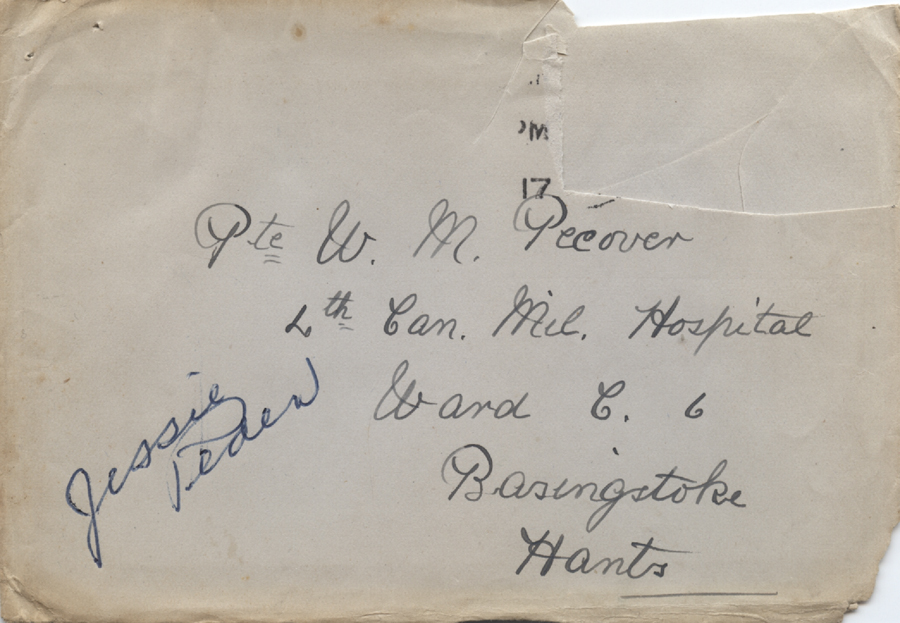 PM
17
Pte W. M. Pecover
4th Can. Mil. Hospital
Ward C. 6
Basingstoke
Hants
Jessie
Peden